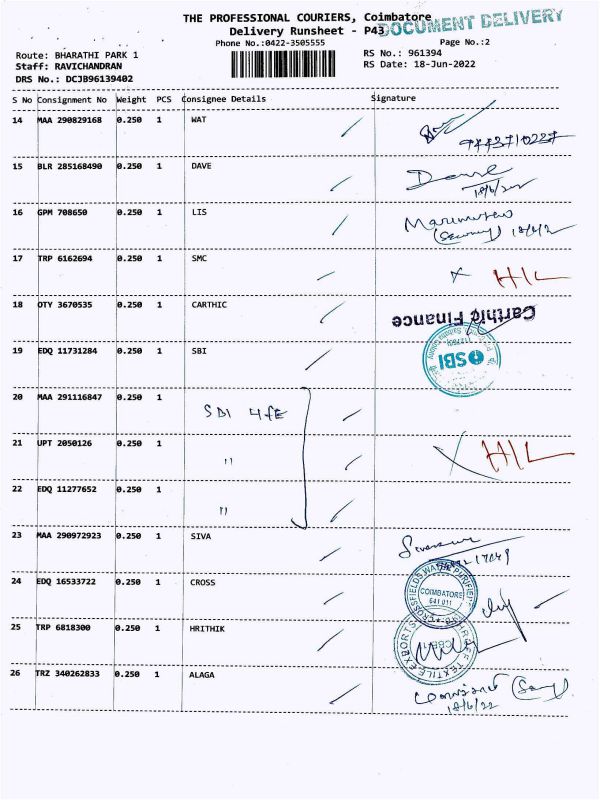 THE PROFESSIONAL COURIERS, Coimbatore
DOCUMENT DELIVERY
Delivery Runsheet - P43
Phone No.:0422-3505555 Page No.:2
Route: BHARATHI PARK 1 RS No.: 961394
Staff: RAVICHANDRAN RS Date: 18-Jun-2022
DRS No.: DCJB96139402
S No Consignment No Weight PCS Consignee Details Signature
14 MAA 290829168 0.250 1 WAT
9443710227
15 BLR 285168490 0.250 1 DAVE
16 GPM 708650 0.250 1 LIS
17 TRP 6162694 0.250 1 SMC X HIL
18 OTY 3670535 0.250 1 CARTHIC Carthic Finance
19 EDQ 11731284 0.250 1 SBI SBI
20 MAA 291116847 0.250 1 SBI LIFE
21 UPT 2050126 0.250 1 " X HIL
22 EDQ 11277652 0.250 1 "
23 MAA 290972923 0.250 1 SIVA
24 EDQ 16533722 0.250 1 CROSS CROSSFIELDS WATER PURIFIER
COIMBATORE
641 011
25 TRP 6818300 0.250 1 HRITHIK TEXTILE EXPORTS
26 TRZ 340262833 0.250 1 ALAGA
18/6/22